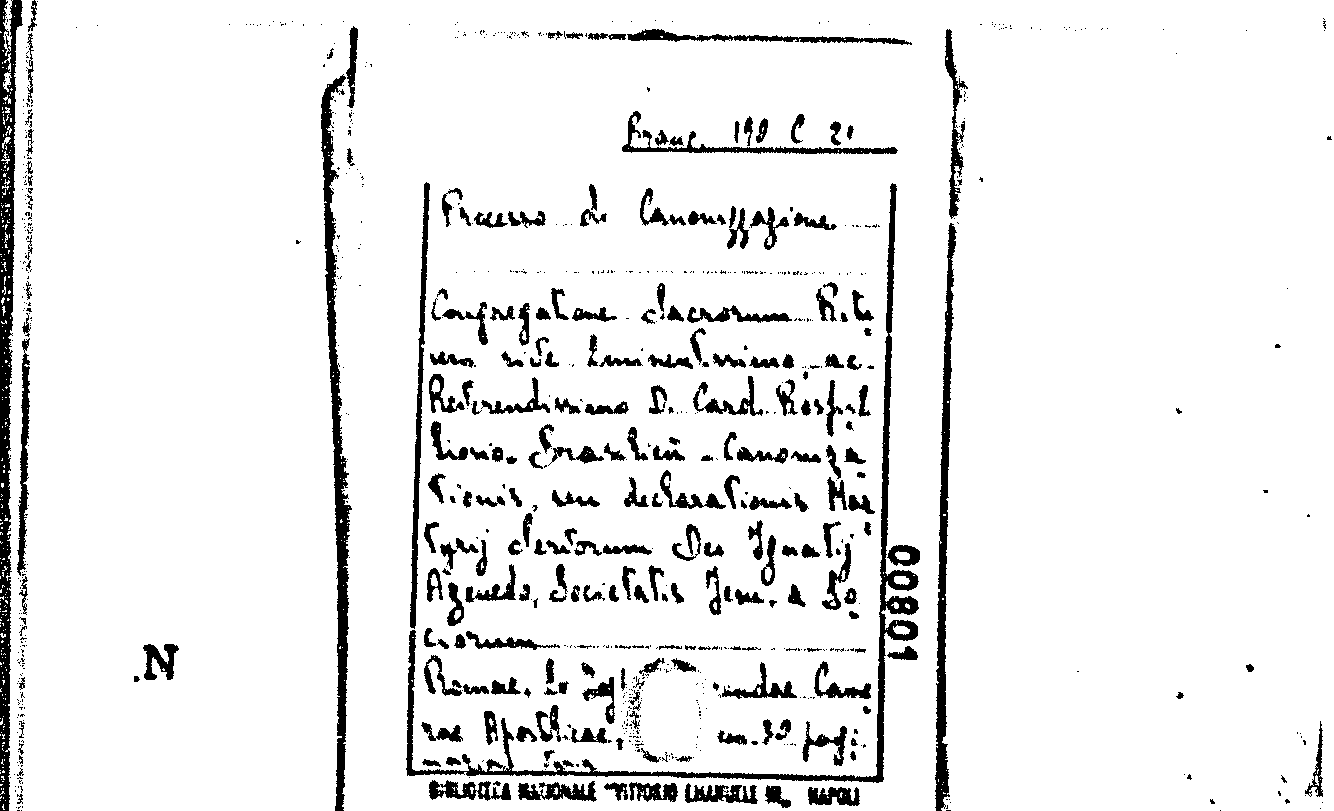 Branc. 190 C 21
Processo di Canonizzazione
Congregatione Sacrorum Ritu
um sive Eminentissimo, ac
Reverendissimo D. Card. Rospi
liosio. Brasilien̄ - Canoniza
tionis, seu declarationis Mar
tyrij Servorum Dei Ignatij
Azevedo, Societatis Jesu, & So
ciorum
Romae, Ex Rev. Came
rae Apostolicae, con 32 pagi
00801
N.
BIBLIOTECA NAZIONALE "VITTORIO EMANUELE III" NAPOLI